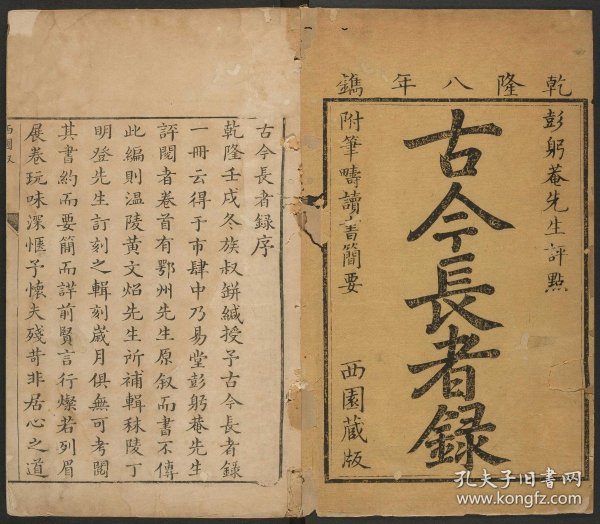 乾隆八年鐫
彭躬菴先生評點
古今長者録
附筆疇讀書簡要
西園藏版
古今長者録序
乾隆壬戌冬族叔鉼緘授予古今長者録
一冊云得于市肆中乃易堂彭躬菴先生
評閱者卷首有鄂州先生原叙而書不傳
此編則溫陵黄文炤先生所補輯秣陵丁
明登先生訂刻之輯刻歲月俱無可考閱
其書約而要簡而詳前賢言行燦若列眉
展卷玩味深愜予懷夫殘苛非居心之道
孔夫子旧书网
www.kongfz.com